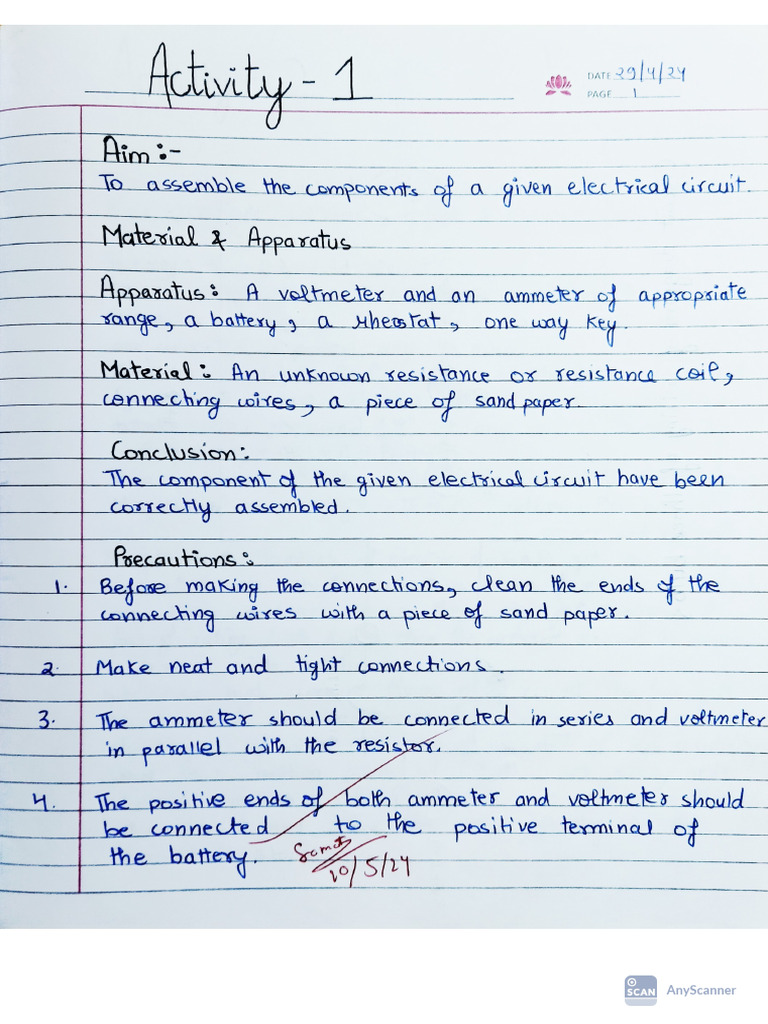 Activity - 1
DATE 29/4/24
PAGE 1
Aim :-
To assemble the components of a given electrical circuit.
Material & Apparatus
Apparatus: A voltmeter and an ammeter of appropriate
range, a battery, a rheostat, one way key.
Material: An unknown resistance or resistance coil,
connecting wires, a piece of sand paper.
Conclusion:
The component of the given electrical circuit have been
correctly assembled.
Precautions:
1. Before making the connections, clean the ends of the
connecting wires with a piece of sand paper.
2. Make neat and tight connections.
3. The ammeter should be connected in series and voltmeter
in parallel with the resistor.
4. The positive ends of both ammeter and voltmeter should
be connected to the positive terminal of
the battery.
10/5/24
SCAN AnyScanner